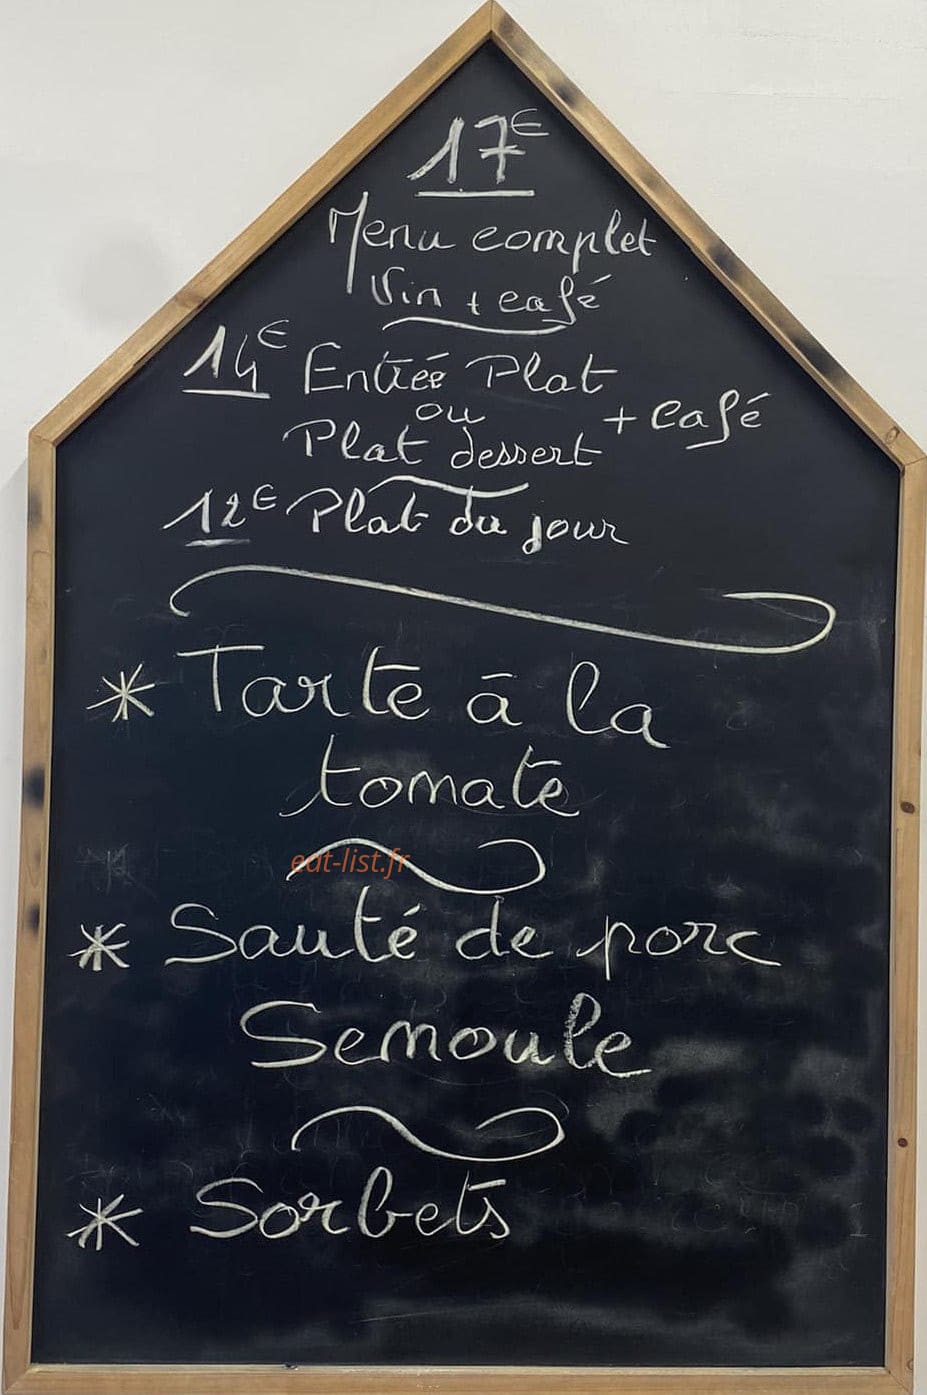 17€
Menu complet
Vin + café
14€ Entrée Plat
ou
+ café
Plat dessert
12€ Plat du jour
* Tarte à la
tomate
edt-list.fr
* Sauté de porc
Semoule
* Sorbets